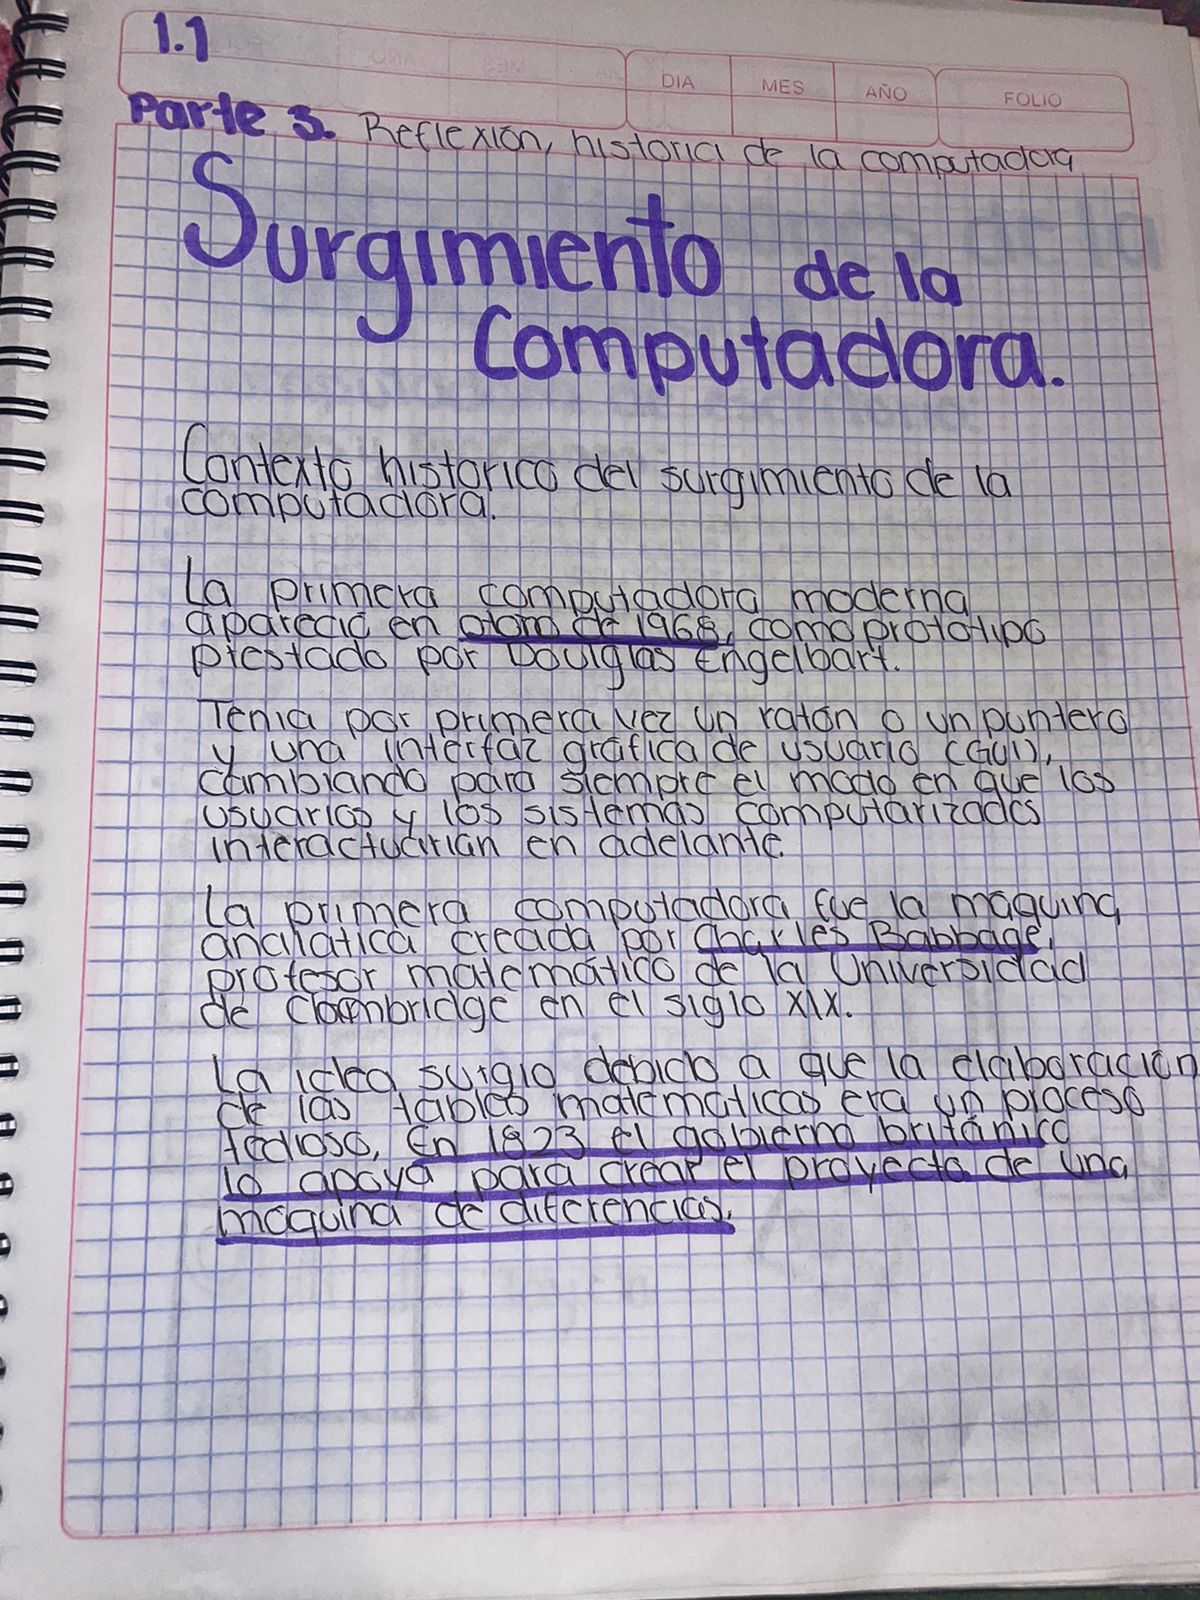 1.1
DIA MES AÑO FOLIO
Parte 3. Reflexión, historia de la computadora
Surgimiento de la
Computadora.
Contexto historico del surgimiento de la
computadora.
La primera computadora moderna
apareció en otoño de 1968, como prototipo
prestado por Doulglas Engelbart.
Tenia por primera vez un ratón o un puntero
y una interfaz gráfica de usuario (GUI),
cambiando para siempre el modo en que los
usuarios y los sistemas computarizados
interactuarian en adelante.
La primera computadora fue la maquina
analiática creada por Charles Babbage,
profesor matemático de la Universidad
de Cambridge en el siglo XIX.
La idea surgio debido a que la elaboración
de las tablas matemáticas era un proceso
tedioso, En 1823 el gobierno británico
lo apoya para crear el proyecto de una
maquina de diferencias.